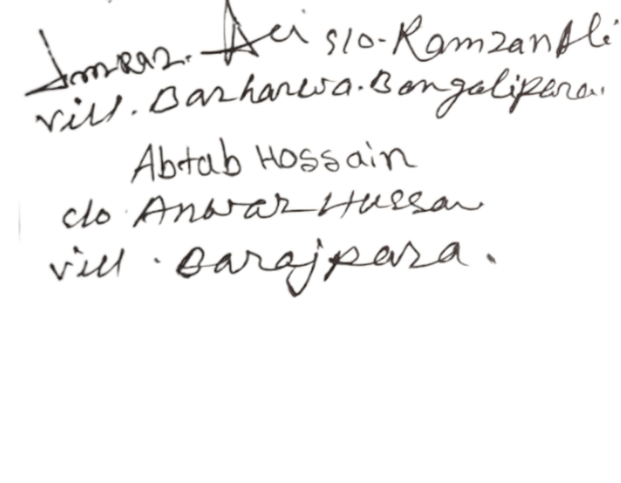 Imraz. Ali s/o - Ramzan Ali
vill. Barharwa. Bangalipara.
Abtab Hossain
c/o Anwar Hussan
vill. Barajpara.